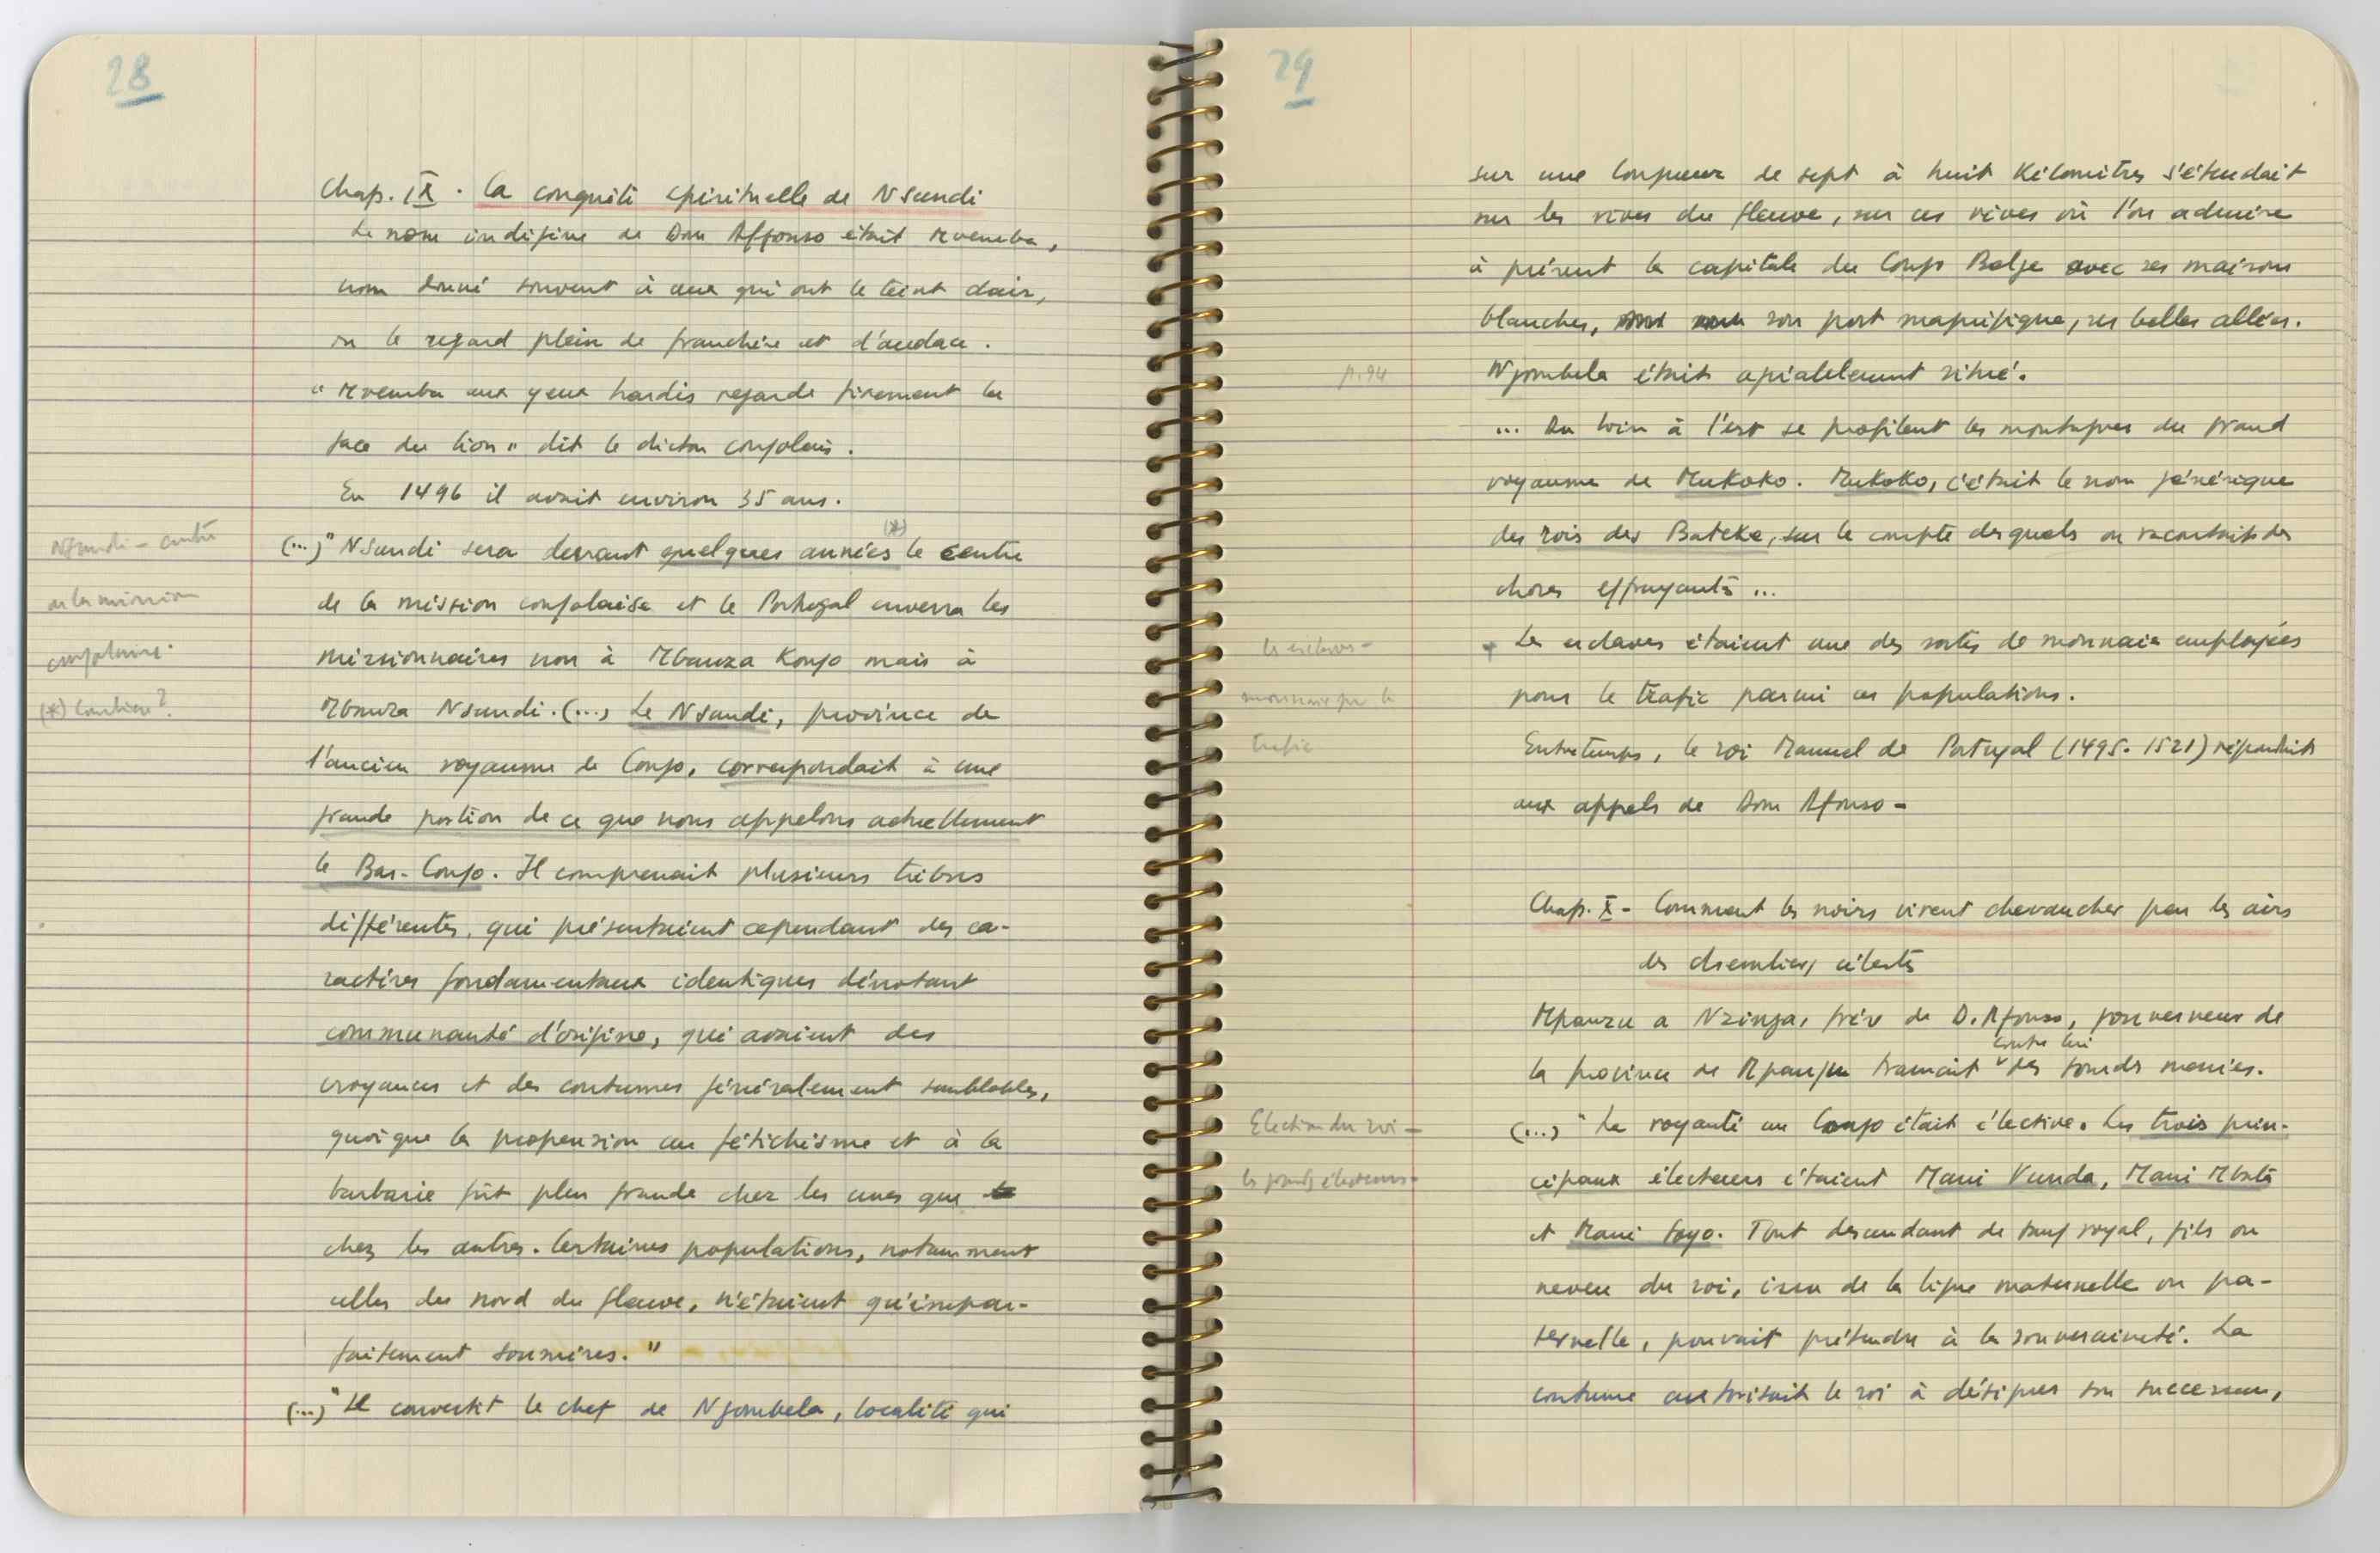 28
Chap. IX. La conquête spirituelle de Nsundi
Le nom indigène de Dom Affonso était Mvemba,
nom donné souvent à ceux qui ont le teint clair,
ou le regard plein de franchise et d'audace.
"Mvemba aux yeux hardis regarde fixement la
face du lion" dit le dicton congolais.
En 1496 il avait environ 35 ans.
(*)
(...) "Nsundi sera devant quelques années le centre
de la mission congolaise et le Portugal enverra les
missionnaires non à Mbanza Kongo mais à
Mbanza Nsundi. (...) Le Nsundi, province de
l'ancien royaume de Congo, correspondait à une
grande portion de ce que nous appelons actuellement
le Bas-Congo. Il comprenait plusieurs tribus
différentes, qui présentaient cependant des ca-
ractères fondamentaux identiques dénotant
communauté d'origine, qui avaient des
croyances et des coutumes généralement semblables,
quoique la propension au fétichisme et à la
barbarie fût plus grande chez les unes que
chez les autres. Certaines populations, notamment
celles du nord du fleuve, n'étaient qu'impar-
faitement soumises."
(...) "Il convertit le chef de Ngombela, localité qui
Nsundi - centre
de la mission
congolaise.
(*) Combien?
29
sur une longueur de sept à huit kilomètres s'étendait
sur les rives du fleuve, sur ces rives où l'on admire
à présent la capitale du Congo Belge avec ses maisons
blanches, son port magnifique, ses belles allées.
p. 94
Ngombela était agréablement situé.
... Au loin à l'est se profilent les montagnes du grand
royaume de Mukoko. Mukoko, c'était le nom générique
des rois des Bateke, sur le compte desquels on racontait des
choses effrayantes ...
Les esclaves étaient une des sortes de monnaie employées
pour le trafic parmi ces populations.
Entretemps, le roi Manuel de Portugal (1495-1521) répondait
aux appels de Dom Afonso -
les esclaves -
monnaie pr le
trafic
Chap. X - Comment les noirs virent chevaucher par les airs
des chevaliers célestes
Mpanzu a Nzinga, frère de D. Afonso, gouverneur de
contre lui
la province de Mpangu tramait des sourdes menées.
(...) "La royauté au Congo était élective. Les trois prin-
cipaux électeurs étaient Mani Vunda, Mani Mbata
et Mani Soyo. Tout descendant de sang royal, fils ou
neveu du roi, issu de la ligne maternelle ou pa-
ternelle, pouvait prétendre à la souveraineté. La
coutume autorisait le roi à désigner son successeur,
Election du roi -
les grands électeurs -